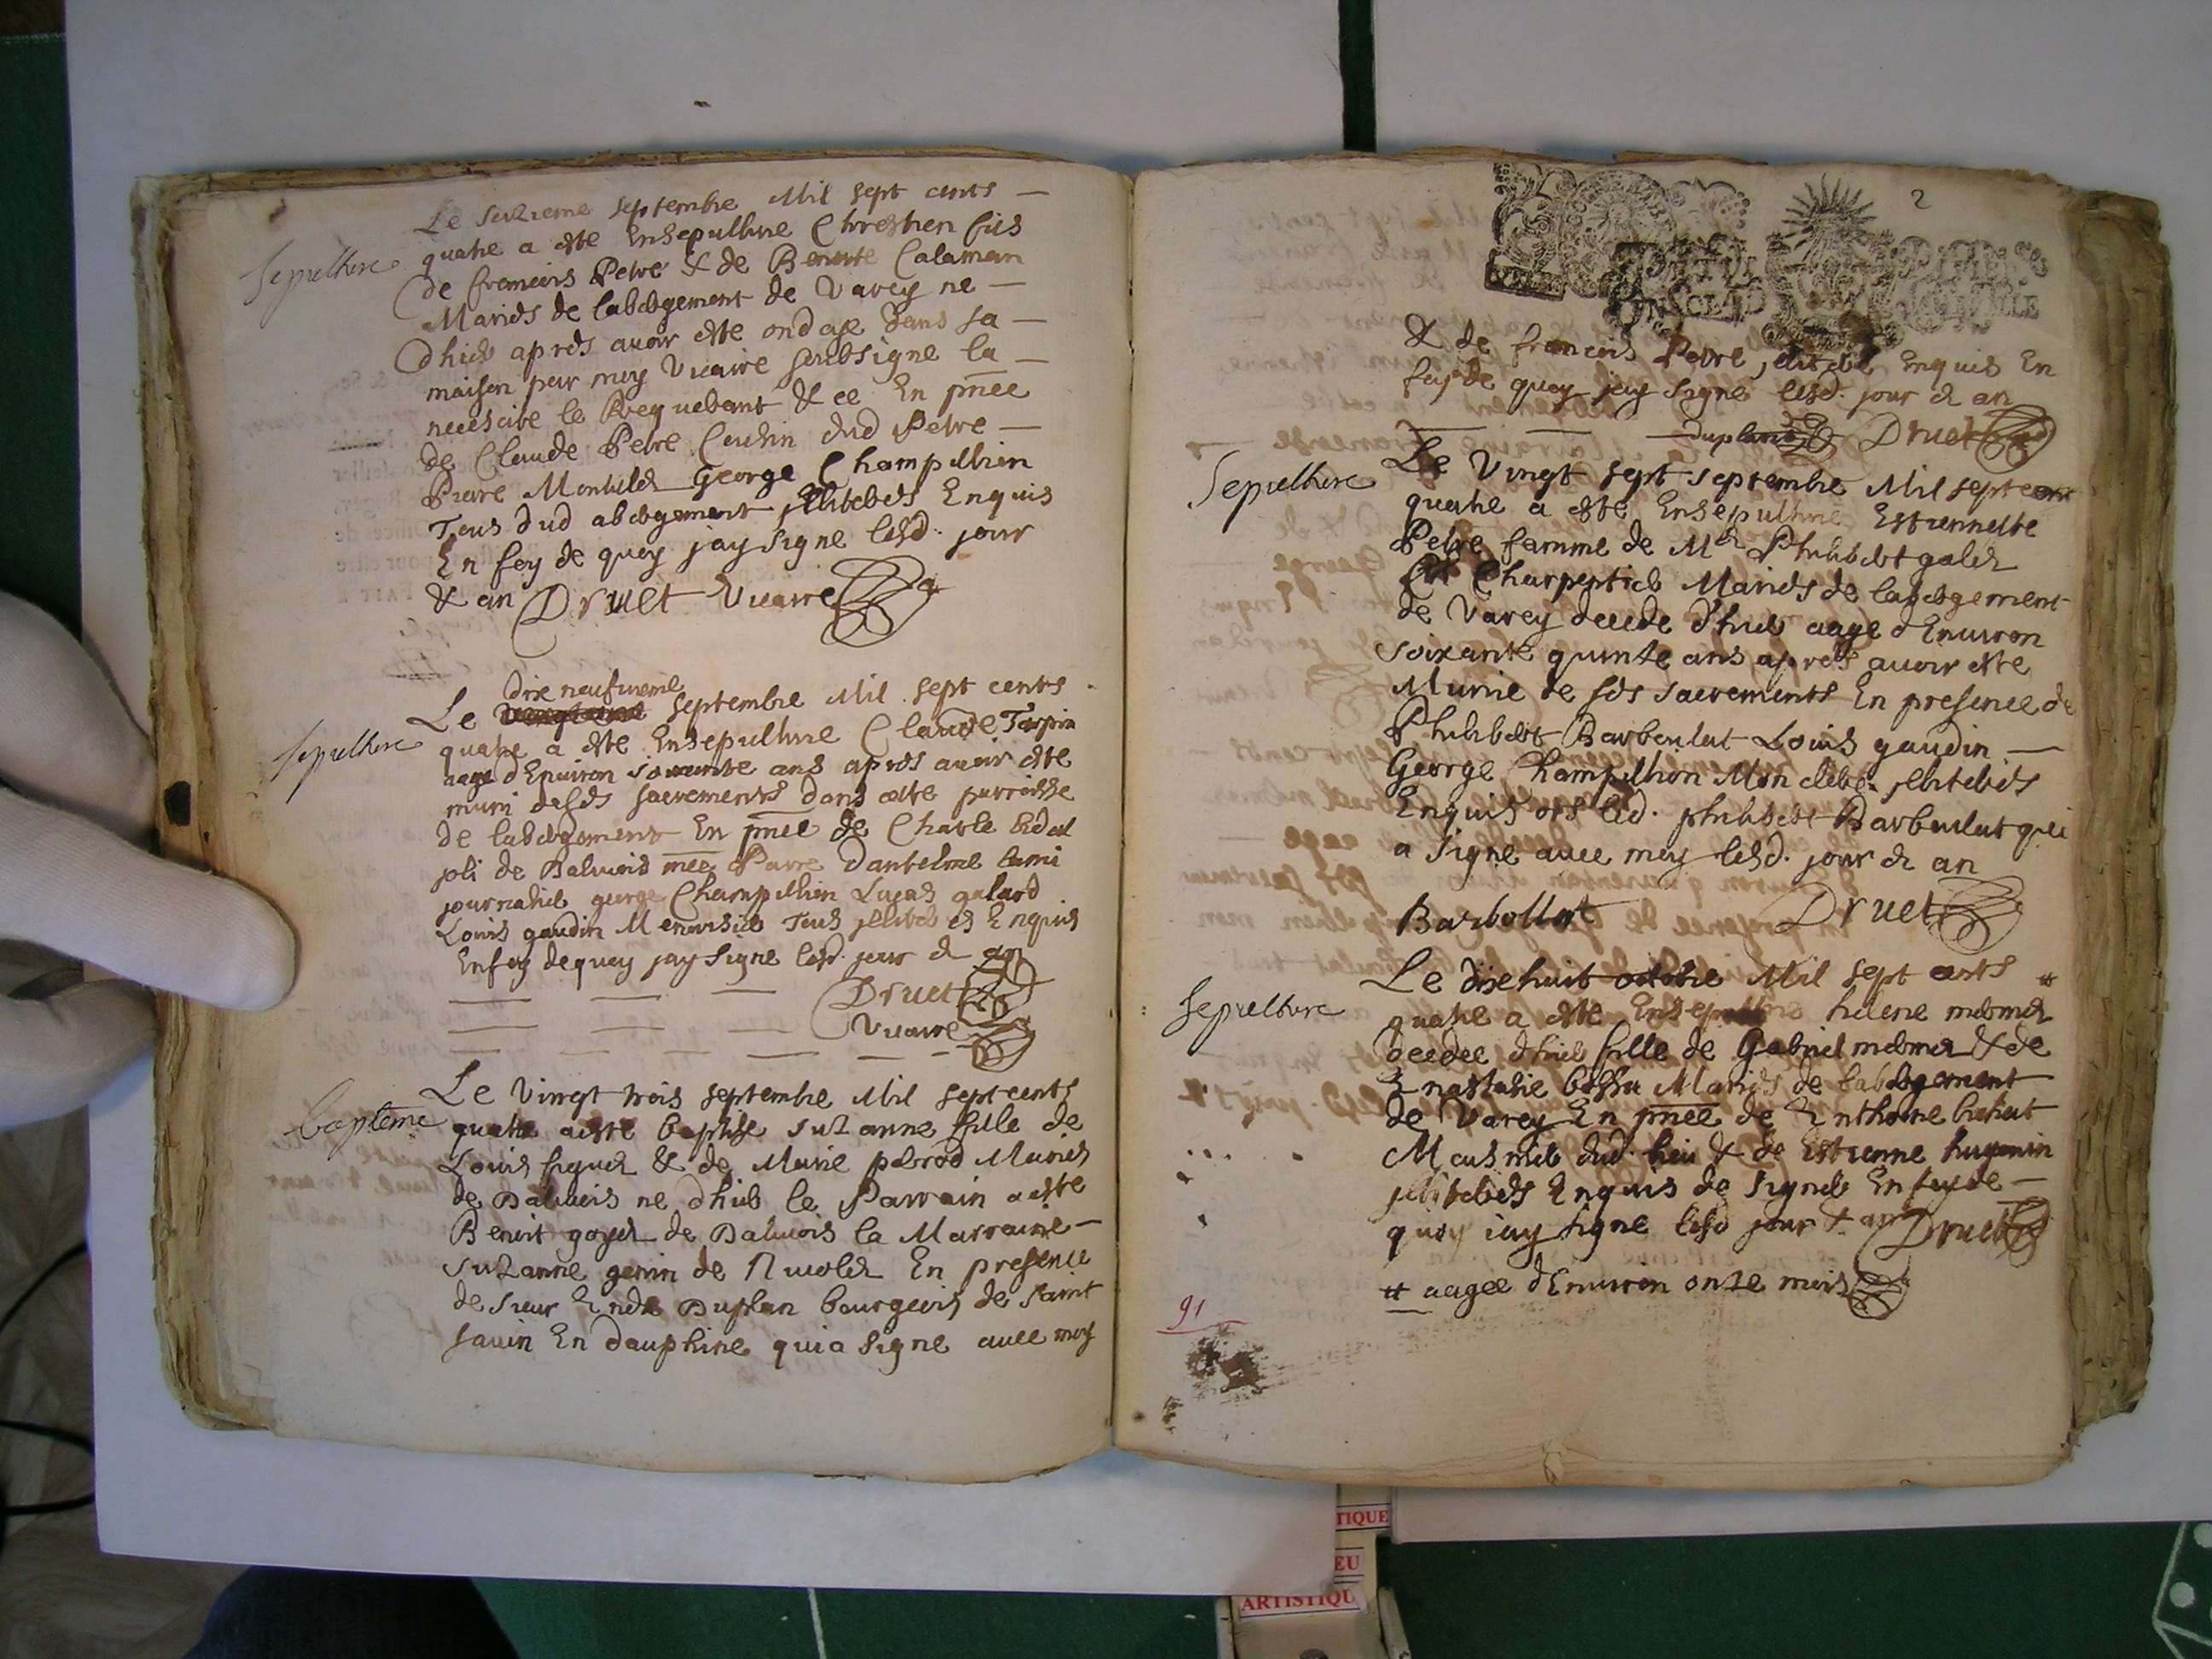 Le seizieme septembre Mil sept cents —
Sepulture
quatre a este Ensepulture Chrestien fils
de francois Petre & de Benoite Calaman
Mariés de labergement de Varey ne —
dhier aprés avoir este ondoye dans sa —
maison par moy Vicaire soubsigne la —
necessite le Requerant & ce En pñce
de Claude Petre Cousin dud Petre —
Pierre George Champillion
Tous dud abergement jlliterés Enquis
En foy de quoy jay signe lesd. jour
& an Druet Vicaire
dixneufvieme
Le septembre Mil sept cents
Sepulture
quatre a este Ensepulture Claude Tarpin
aage dEnviron soixante ans aprés avoir este
muni desds sacrements dans cette parroisse
de labergement En pñce de Charle
joli de Balvois Dantelme
journalier george Champillion Lucas galard
Louis gaudin Menuisier Tous jlliterés Enquis
Enfoy dequoy jay signe lesd. jour & an
Druet
Vicaire
Le Vingt trois septembre Mil sept cents
baptême
quatre aeste baptise Suzanne fille de
Louis & de Marie Mariés
de Balvois ne dhier le Parrain aeste
Benoit goyet de Balvois la Marraine —
Suzanne genin de En presence
de sieur Andre Duplan bourgeois de saint
savin En dauphine qui a signe avec moy
2
& de francois Petre jlliteré Enquis En
foy de quoy jay signe lesd. jour & an
duplan Druet
Le Vingt sept septembre Mil sept cent
Sepulture
quatre a este Ensepulture Estiennette
Petre famme de Mr Philibert galet
Charpentier Mariés de labergement
de Varey decede dhier aage dEnviron
soixante quinze ans aprés avoir este
Munie de sés sacrements En presence de
Philibert Barboulat Louis gaudin —
George Champillion jlliterés
Enquis ors led. philibert Barbulat qui
a signe avec moy lesd. jour & an
Barbollat Druet
Le dixehuit octobre Mil sept cents #
Sepulture
quatre a este Ensepulture helene mermet
decedee dhier fille de Gabriel mermet & de
Enastasie bossu Mariés de labergement
de Varey En pñce de Enthoine
dud. lieu & de Estienne hugonin
jlliterés Enquis de signer En foy de —
quoy iay signe lesd jour & an Druet
# aagee dEnviron onze mois
91